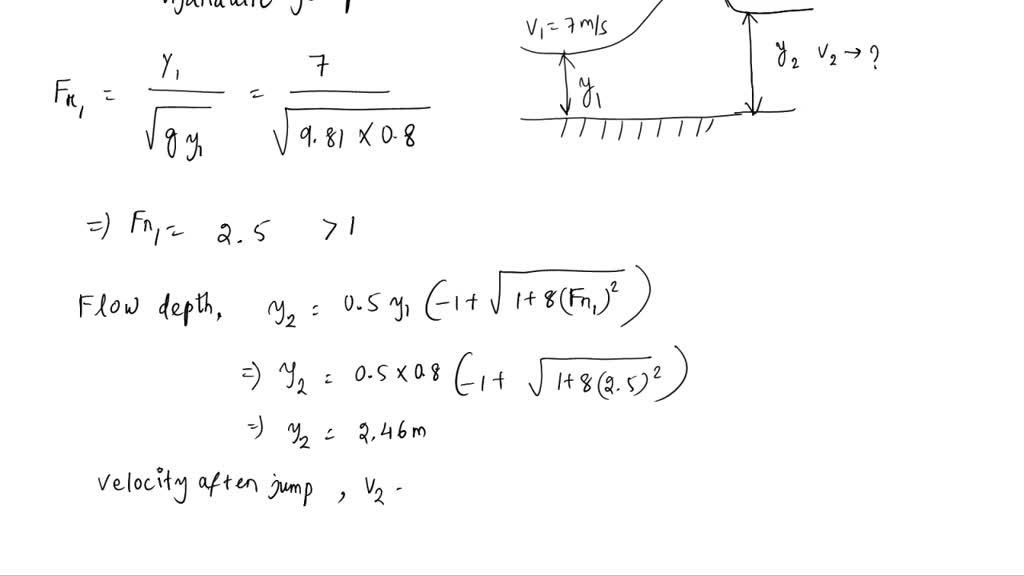 V₁ = 7 m/s
y₂ V₂ → ?
y₁
Fr₁ = Y₁ / √(g y₁) = 7 / √(9.81 × 0.8)
⇒ Fr₁ = 2.5 > 1
Flow depth, y₂ = 0.5 y₁ (-1 + √(1 + 8(Fr₁)²))
⇒ y₂ = 0.5 × 0.8 (-1 + √(1 + 8(2.5)²))
⇒ y₂ = 2.46 m
Velocity after jump, V₂ -